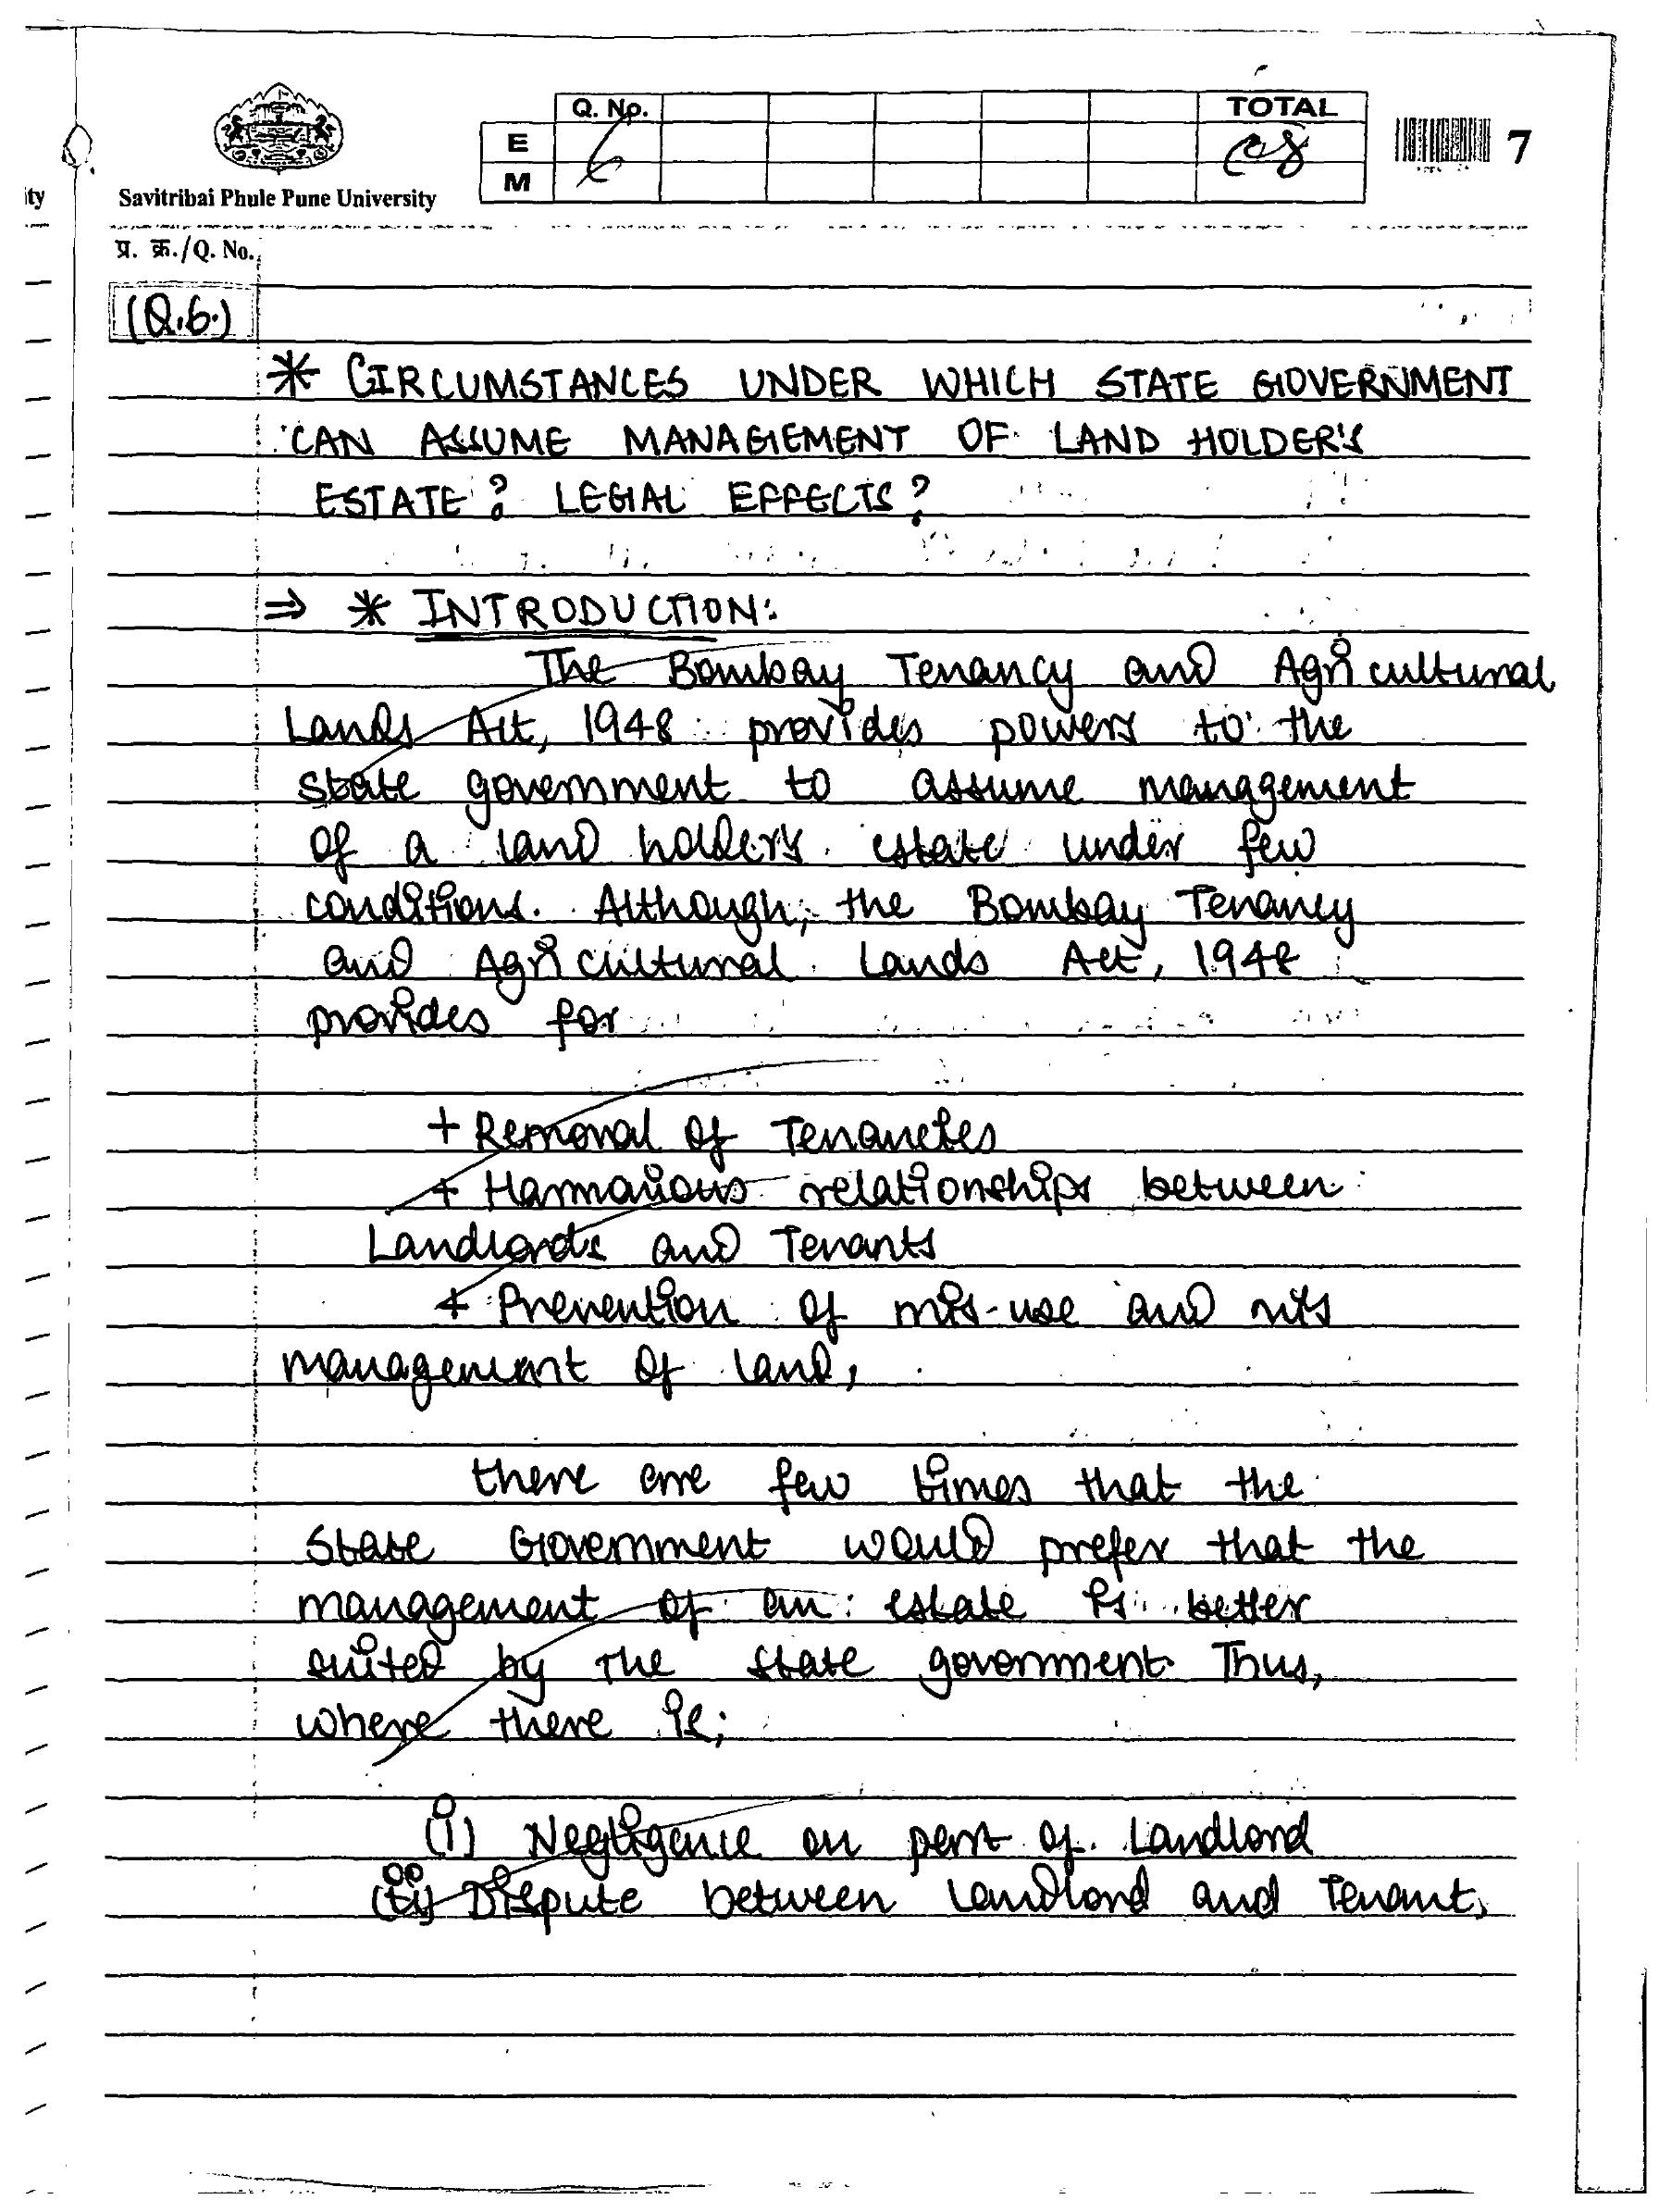 Q. No.
TOTAL
E
M
6
08
7
ity
Savitribai Phule Pune University
प्र. क्र./Q. No.
(Q.6.)
* CIRCUMSTANCES UNDER WHICH STATE GOVERNMENT
CAN ASSUME MANAGEMENT OF LAND HOLDER'S
ESTATE? LEGAL EFFECTS?
⇒ * INTRODUCTION:
The Bombay Tenancy and Agricultural
Lands Act, 1948 provides powers to the
state government to assume management
of a land holders estate under few
conditions. Although, the Bombay Tenancy
and Agricultural Lands Act, 1948
provides for
+ Removal of Tenancies
+ Harmonious relationships between
Landlords and Tenants
+ Prevention of mis-use and mis
management of land,
there are few times that the
State Government would prefer that the
management of an estate is better
suited by the state government. Thus,
where there is;
(i) Negligence on part of Landlord
(ii) Dispute between Landlord and Tenant,